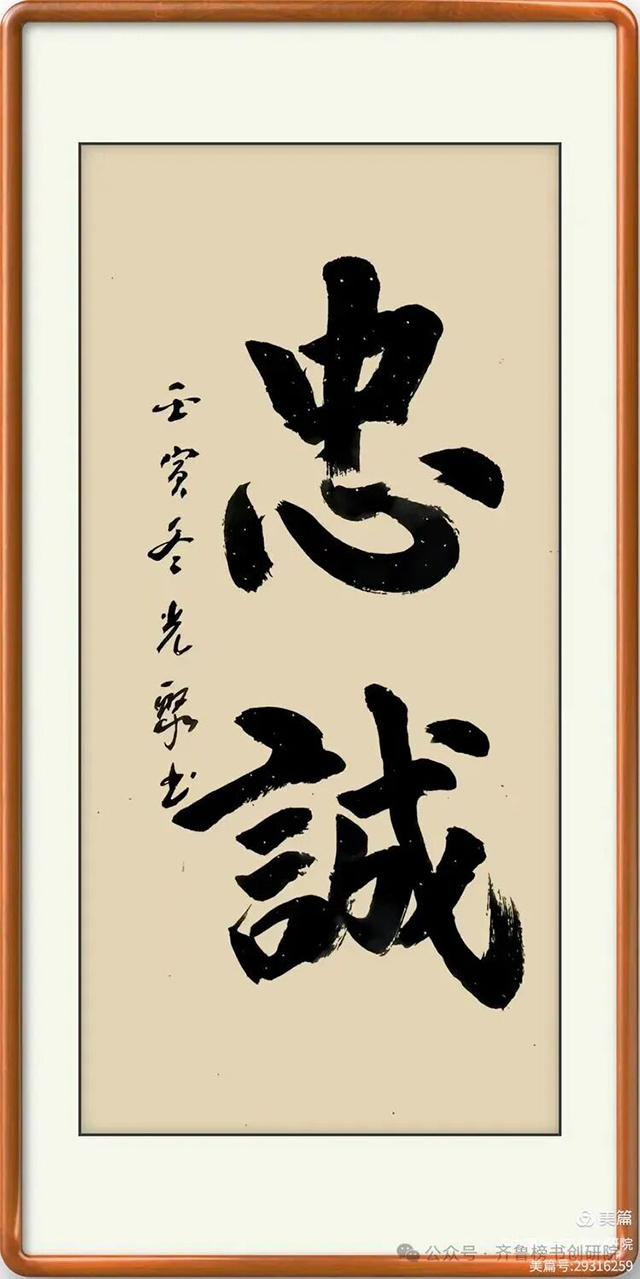 忠誠
壬寅冬光聚书
美篇
公众号·齐鲁榜书创研院
美篇号:29316259